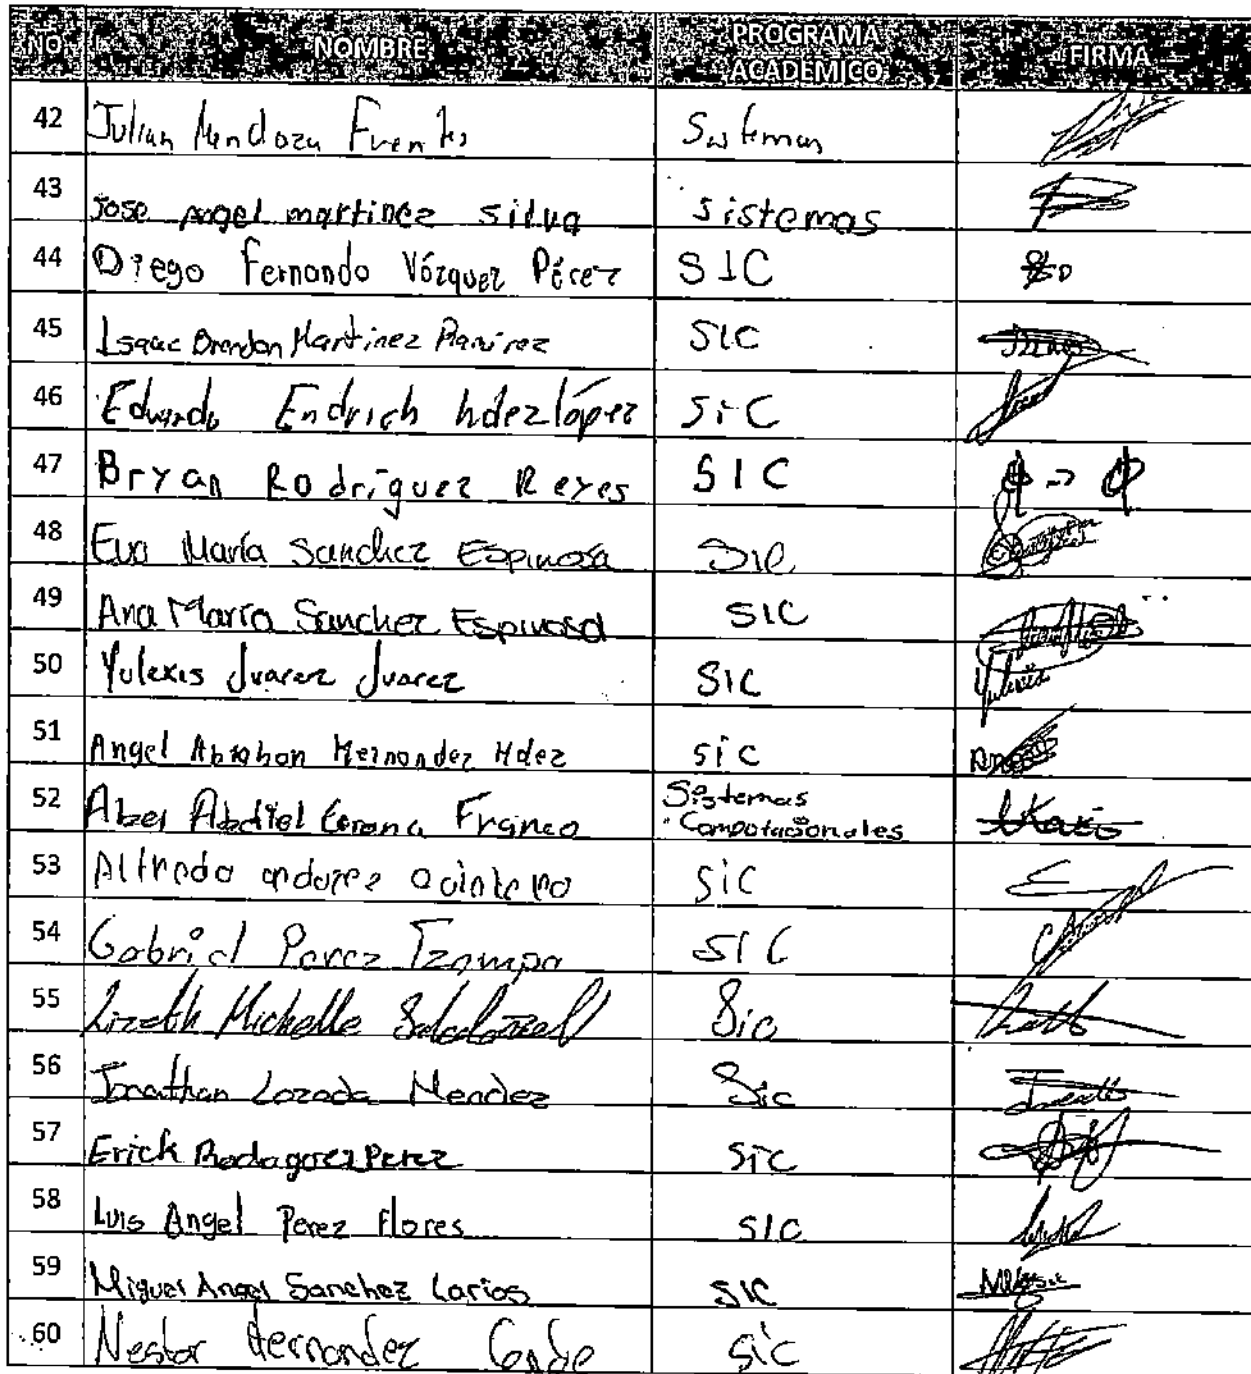 NO. NOMBRE PROGRAMA ACADEMICO FIRMA
42 Julian Mendoza Fuentes Sistemas
43 Jose Angel martinez silva sistemas
44 Diego Fernando Vázquez Pérez SIC
45 Isaac Brandon Martinez Ramirez SIC
46 Eduardo Endrich hdez lópez SiC
47 Bryan Rodríguez Reyes SIC
48 Eva María Sanchez Espinosa SIC
49 Ana María Sanchez Espinosa SIC
50 Yulexis Juarez Juarez SIC Yulexis
51 Angel Abrahan Hernandez Hdez sic
52 Abdiel Franco Sistemas Computacionales
53 Alfredo sic
54 Gabriel Perez Tzompa SIC
55 Lizeth Michelle Sic
56 Jonathan Lozada Mendez Sic
57 Erick Perez sic
58 Luis Angel Perez Flores SIC
59 Miguel Angel Sanchez Larios SIC
60 Nestor Hernandez Conde sic